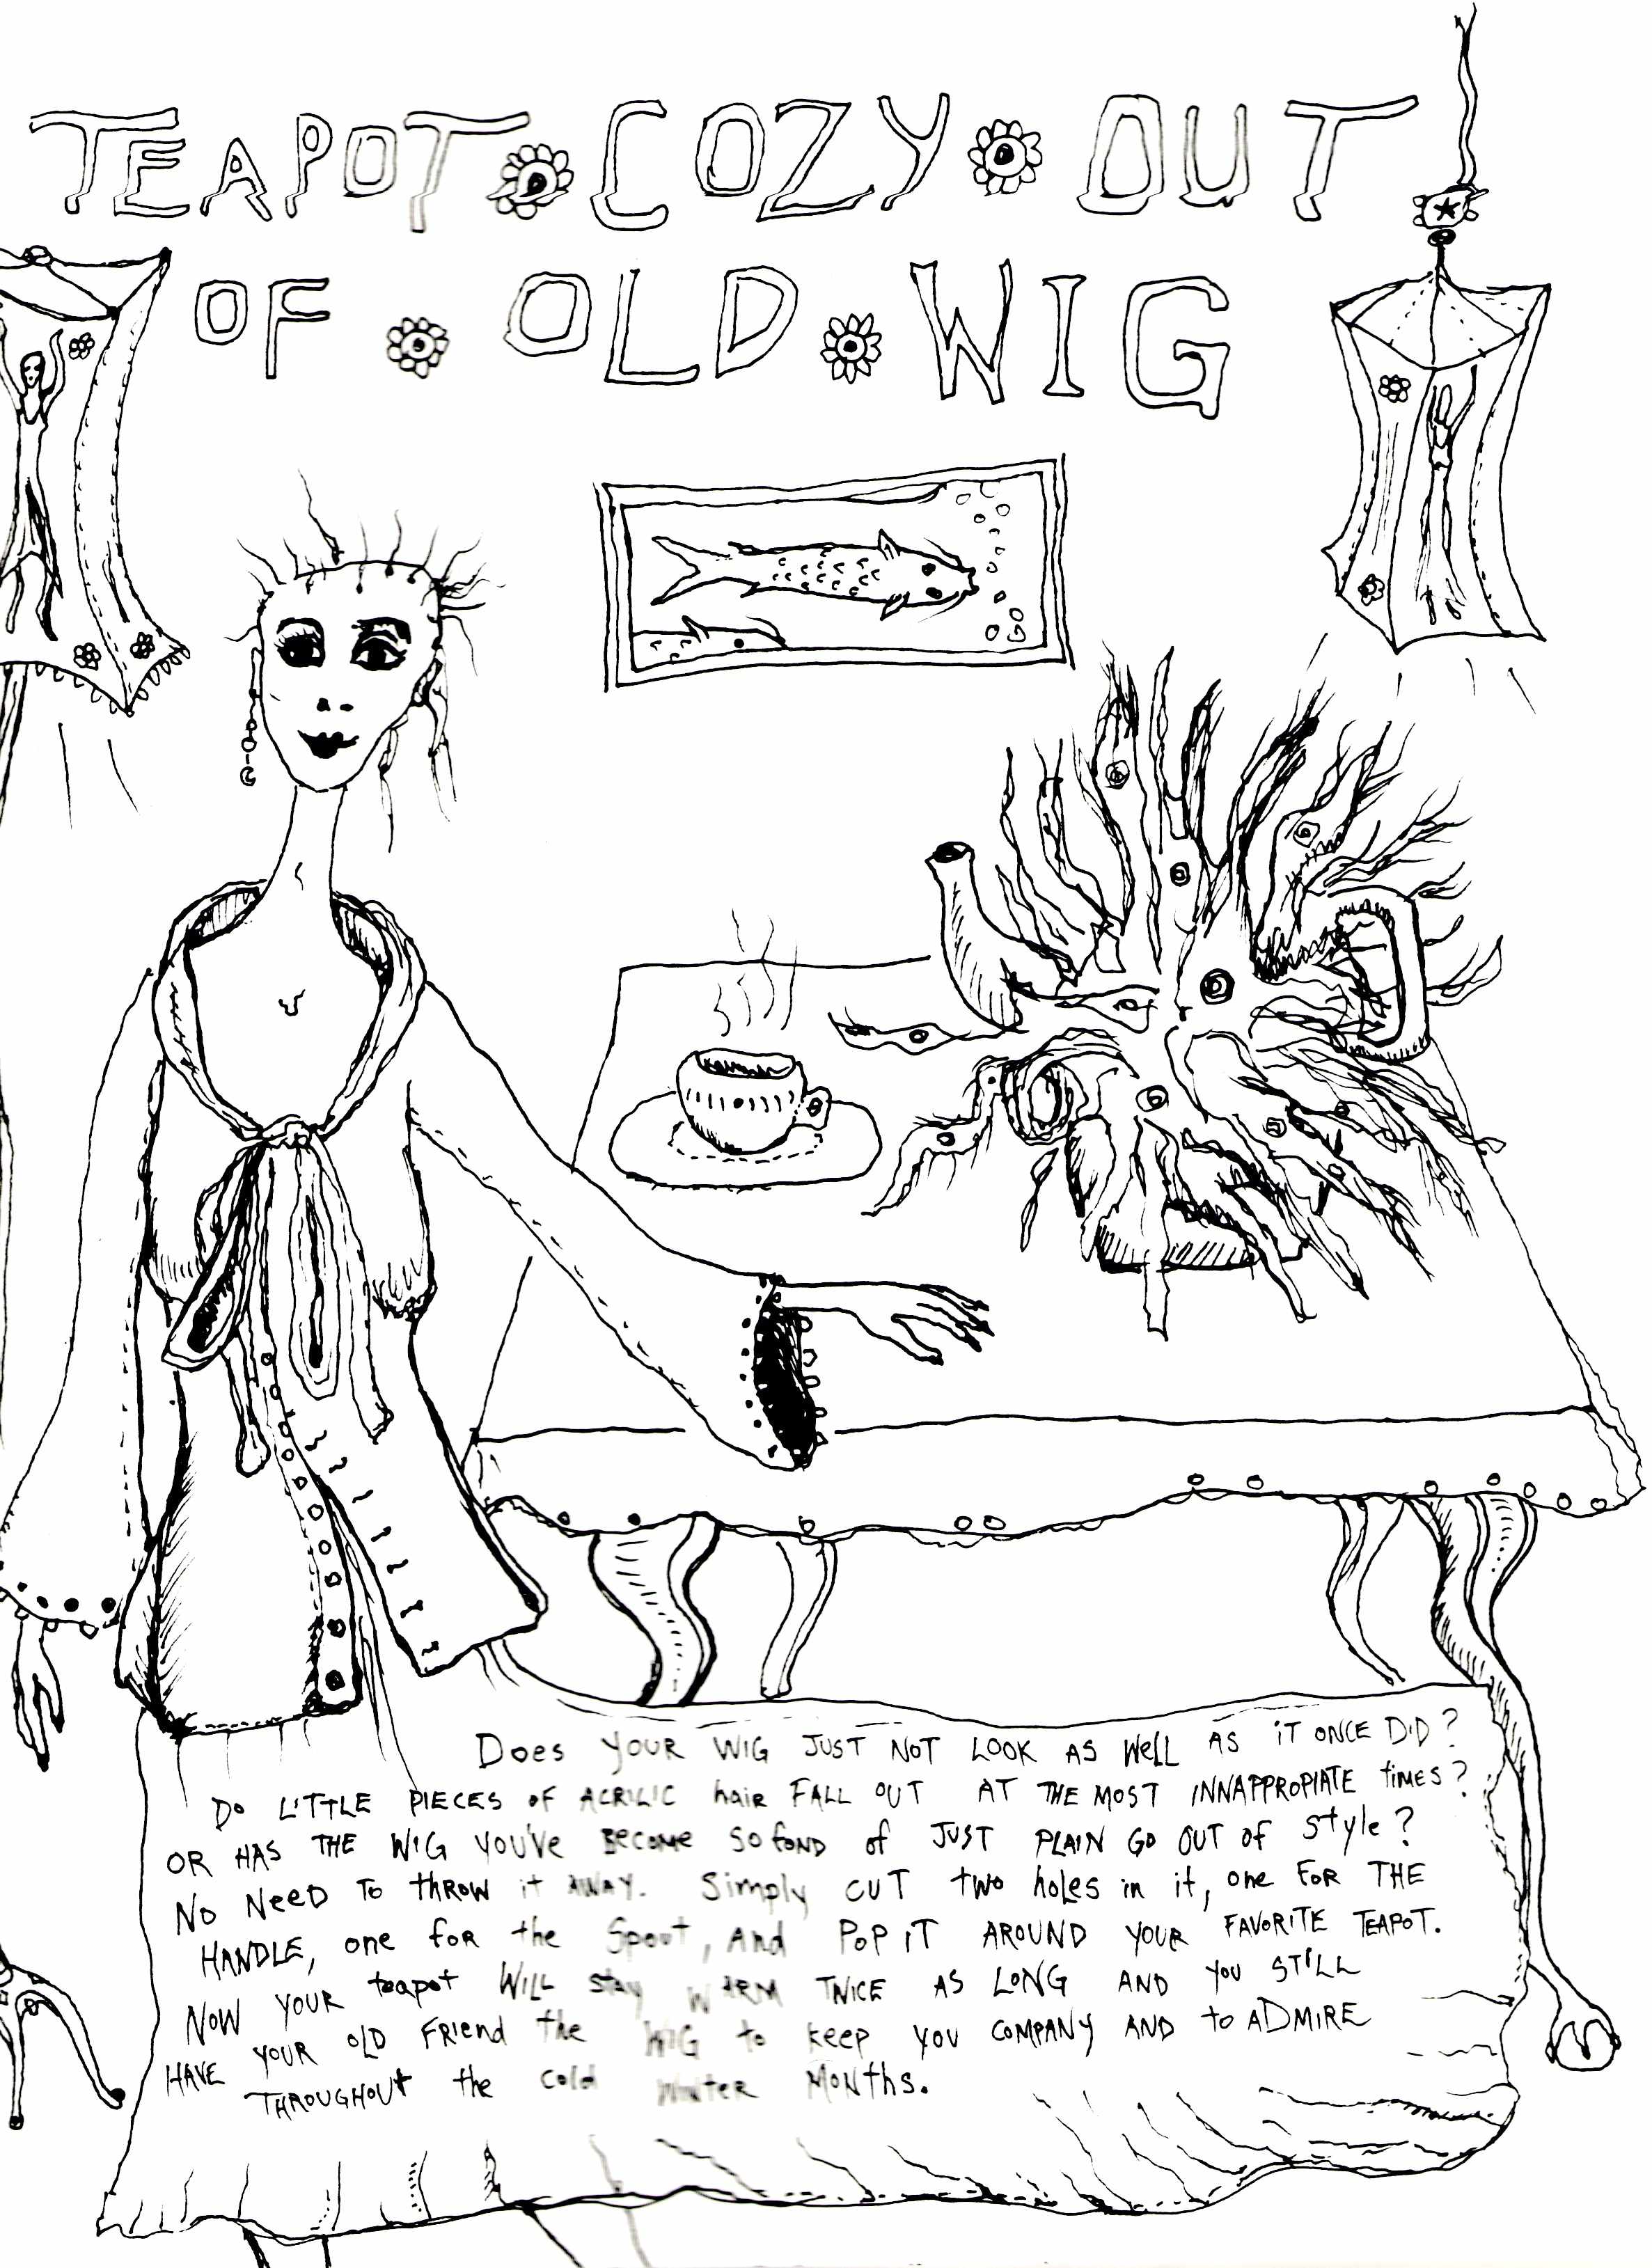 TEAPOT COZY OUT
OF OLD WIG
Does YOUR WIG JUST NOT LOOK AS Well AS iT ONCE DiD?
Do LiTTLE PIECES oF ACRILIC hair FALL OUT AT THE MOST INNAPPROPIATE times?
OR HAS THE WIG YOU'VE BECOME SO FOND of JUST PLAIN GO OUT OF Style?
No NeeD To thROW it AWAY. Simply CUT two holes in it, one FOR THE
HANDLE, one for the Spout, And PoP iT AROUND YOUR FAVORITE TEAPOT.
NOW YOUR teapot WiLL stay WARM TWICE AS LONG AND YOU STILL
HAVE YOUR OLD FRIend the WIG to keep YOU COMPANY AND to ADMIRE
THROUGHOUt the cold WinTER MONths.